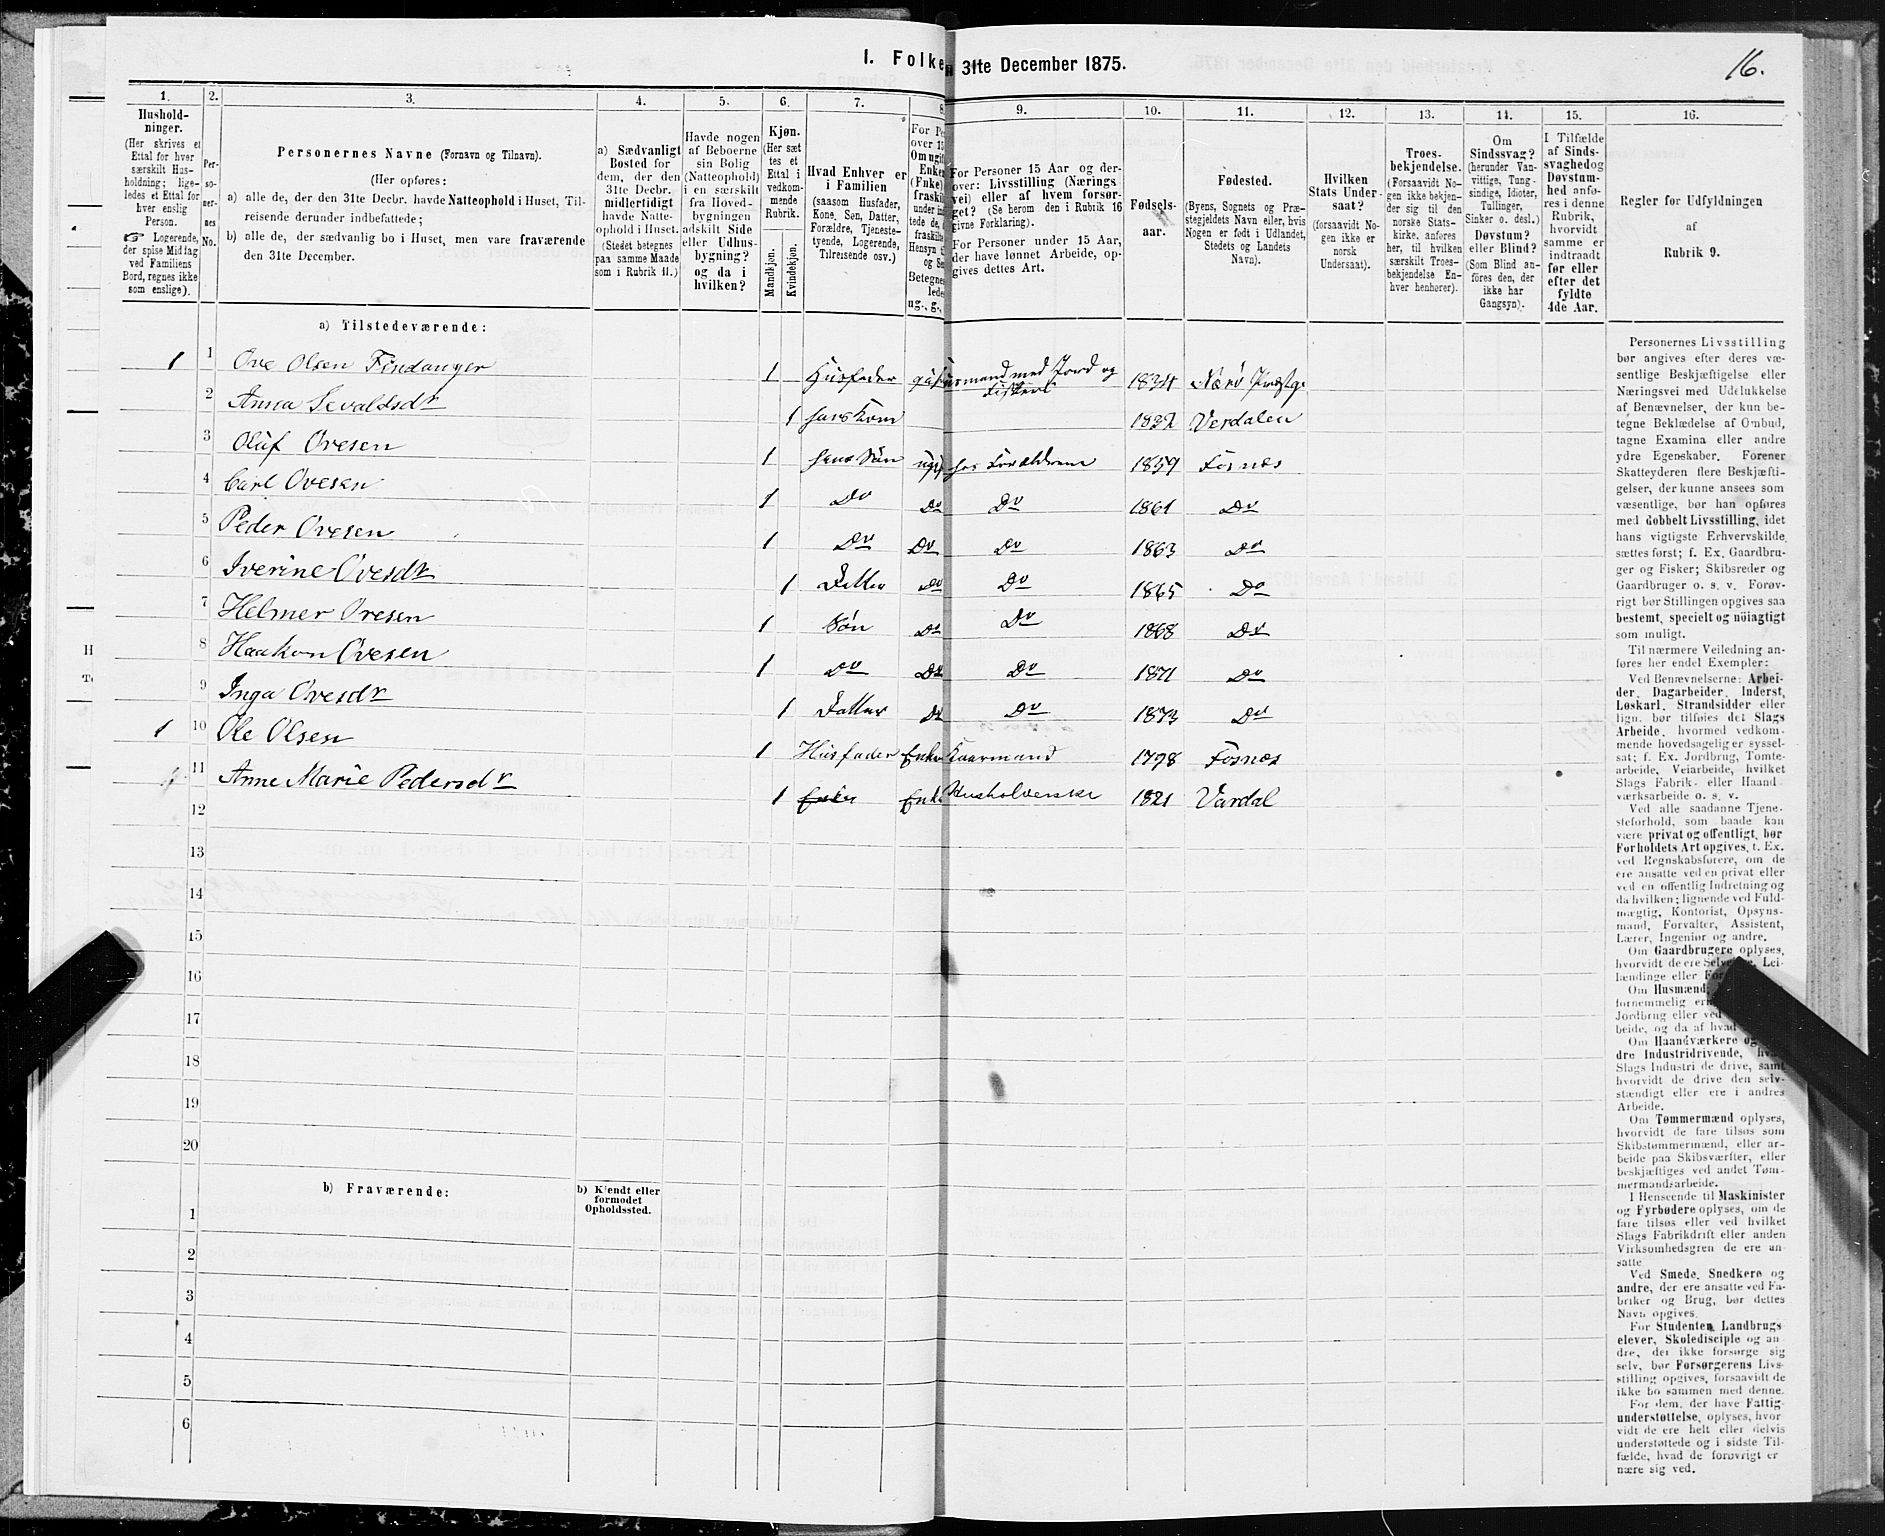 I. Folke
31te December 1875.
16.
1.
2.
3.
4.
5.
6.
7.
8
9.
10.
11.
12.
13.
14.
15.
16.
Hushold-
ninger.
(Her skrives et
Ettal for hver
særskilt Hus-
holdning; lige-
ledes et Ettal for
hver enslig
Person.
☞ Logerende,
der spise Middag
ved Familiens
Bord, regnes ikke
som enslige).
Per-
so-
ner-
nes
No.
Personernes Navne (Fornavn og Tilnavn).
(Her opføres:
a) alle de, der den 31te Decbr. havde Natteophold i Huset, Til-
reisende derunder indbefattede;
b) alle de, der sædvanlig bo i Huset, men vare fraværende
den 31te December.
a) Sædvanligt
Bosted for
dem, der den
31te Decbr.
midlertidigt
havde Natte-
ophold i Huset.
(Stedet betegnes
paa samme Maade
som i Rubrik 11.)
Havde nogen
af Beboerne
sin Bolig
(Natteophold)
i en særskilt
fra Hoved-
bygningen
adskilt Side
eller Udhus-
bygning?
og da i
hvilken?
Kjøn.
(Her sæt
tes et
Ettal i
vedkom-
mende
Rubrik.
Mandkjøn.
Kvindekjøn.
Hvad Enhver er
i Familien
(saasom Husfader,
Kone, Søn, Datter,
Forældre, Tjeneste-
tyende, Logerende,
Tilreisende osv.)
For Pe
over 1
Om ugif
Enke
(Enke)
fraskil
under in
tede de,
fraskilt
Hensyn t
og Se
Betegne
lede
ug., g.,
For Personer 15 Aar og der-
over: Livsstilling (Nærings
vei) eller af hvem forsør-
get? (Se herom den i Rubrik 16
givne Forklaring).
For Personer under 15 Aar,
der have lønnet Arbeide, op-
gives dettes Art.
Fødsels-
aar.
Fødested.
(Byens, Sognets og Præ-
stegjeldets Navn eller, hvis
Nogen er født i Udlandet,
Stedets og Landets
Navn).
Hvilken
Stats Under-
saat?
(forsaavidt No-
gen ikke er
norsk
Undersaat).
Troes-
bekjendelse.
(Forsaavidt No-
gen ikke bekjen-
der sig til den
norske Stats-
kirke, anføres
her, til hvilken
særskilt Troes-
bekjendelse En-
hver henhører).
Om
Sindssvag?
(herunder Van-
vittige, Tung-
sindige, Idioter,
Tullinger,
Sinker o. desl.)
Døvstum?
eller Blind?
(Som Blind an-
föres den, der
ikke har
Gangsyn).
I Tilfælde
af Sinds-
svaghed og
Døvstum-
hed anfø-
res i denne
Rubrik,
hvorvidt
samme er
indtraadt
før eller
efter det
fyldte
4de Aar.
Regler før Udfyldningen
af
Rubrik 9.
a) Tilstedeværende:
1 1 Ove Olsen Findanger 1 Husfader gift Husmand med Jord og Fiskeri 1834 Nærö Præstg.
2 Anna Sevaldsdr 1 hans Kone 1832 Verdalen
3 Oluf Ovesen 1 hans Søn ugift hos Forældrene 1859 Fosnæs
4 Carl Ovesen 1 Do Do Do 1861 Do
5 Peder Ovesen 1 Do Do Do 1863 Do
6 Iverine Ovesdr 1 Datter Do Do 1865 Do
7 Helmer Ovesen 1 Søn Do Do 1868 Do
8 Haakon Ovesen 1 Do Do Do 1871 Do
9 Inga Ovesdr 1 Datter Do Do 1873 Do
1 10 Ole Olsen 1 Husfader Enke Kaarmand 1798 Fosnæs
11 Anne Marie Pedersdr 1 Enke Enke Husholderske 1821 Vardal
12
13
14
15
16
17
18
19
20
b) Fraværende:
b) Kjendt eller
formodet
Opholdssted.
1
2
3
4
5
6
Personernes Livsstilling
bør angives efter deres væ-
sentlige Beskjæftigelse eller
Næringsvei med Udelukkelse
af Benævnelser, der kun be-
tegne Beklædelse af Ombud,
tagne Examina eller andre
ydre Egenskaber. Forener
Skatteyderen flere Beskjæfti-
gelser, der kunne ansees som
væsentlige, bør han opføres
med dobbelt Livsstilling, idet
hans vigtigste Erhvervskilde
sættes først; f. Ex. Gaardbru-
ger og Fisker; Skibsreder og
Gaardbruger o. s. v. Forøv-
rigt bør Stillingen opgives saa
bestemt, specielt og nöiagtigt
som muligt.
Til nærmere Veiledning an-
føres her endel Exempler:
Ved Benævnelserne: Arbei-
der, Dagarbeider, Inderst,
Løskarl, Strandsidder eller
lign. bør tilføies det Slags
Arbeide, hvormed vedkom-
mende hovedsagelig er syssel-
sat; f. Ex. Jordbrug, Tomte-
arbeide, Veiarbeide, hvilket
Slags Fabrik- eller Haand-
værksarbeide o. s. v.
Ved alle saadanne Tjene-
steforhold, som baade kan
være privat og offentligt, bør
Forholdets Art opgives, t. Ex.
ved Regnskabsførere, om de
ere ansatte ved en privat eller
ved en offentlig Indretning og
da hvilken; lignende ved Fuld-
mægtig, Kontorist, Opsyns-
mand, Forvalter, Assistent,
Lærer, Ingeniør og andre.
Om Gaardbrugere oplyses,
hvorvidt de ere Selveiere, Lei-
lændinge eller For
Om Husmænd,
fornemmelig er
Jordbrug eller ved
beide, og da af hvad
Om Haandværkere og
dre Industridrivende, hvad
Slags Industri de drive, samt
hvorvidt de drive den selv-
stændigt eller ere i andres
Arbeide.
Om Tømmermænd oplyses,
hvorvidt de fare tilsøs som
Skibstømmermænd, eller ar-
beide paa Skibsværfter, eller
beskjæftiges ved andet Tøm-
mermandsarbeide.
I Henseende til Maskinister
og Fyrbødere oplyses, om de
fare tilsøs eller ved hvilket
Slags Fabrikdrift eller anden
Virksomhedsgren de ere an-
satte
Ved Smede, Snedkere og
andre, der ere ansatte ved Fa-
briker og Brug, bør dettes
Navn opgives.
For Studenter, Landbrugs-
elever, Skoledisciple og an-
dre, der ikke forsørge sig
selv, bør Forsørgerens Livs-
stilling opgives, forsaavidt de
ikke bo sammen med denne.
For dem, der have Fattig-
understøttelse, oplyses, hvor-
vidt de ere helt eller delvis
understøttede og i sidste Til-
fælde, hvad de forøvrigt er
nære sig ved.